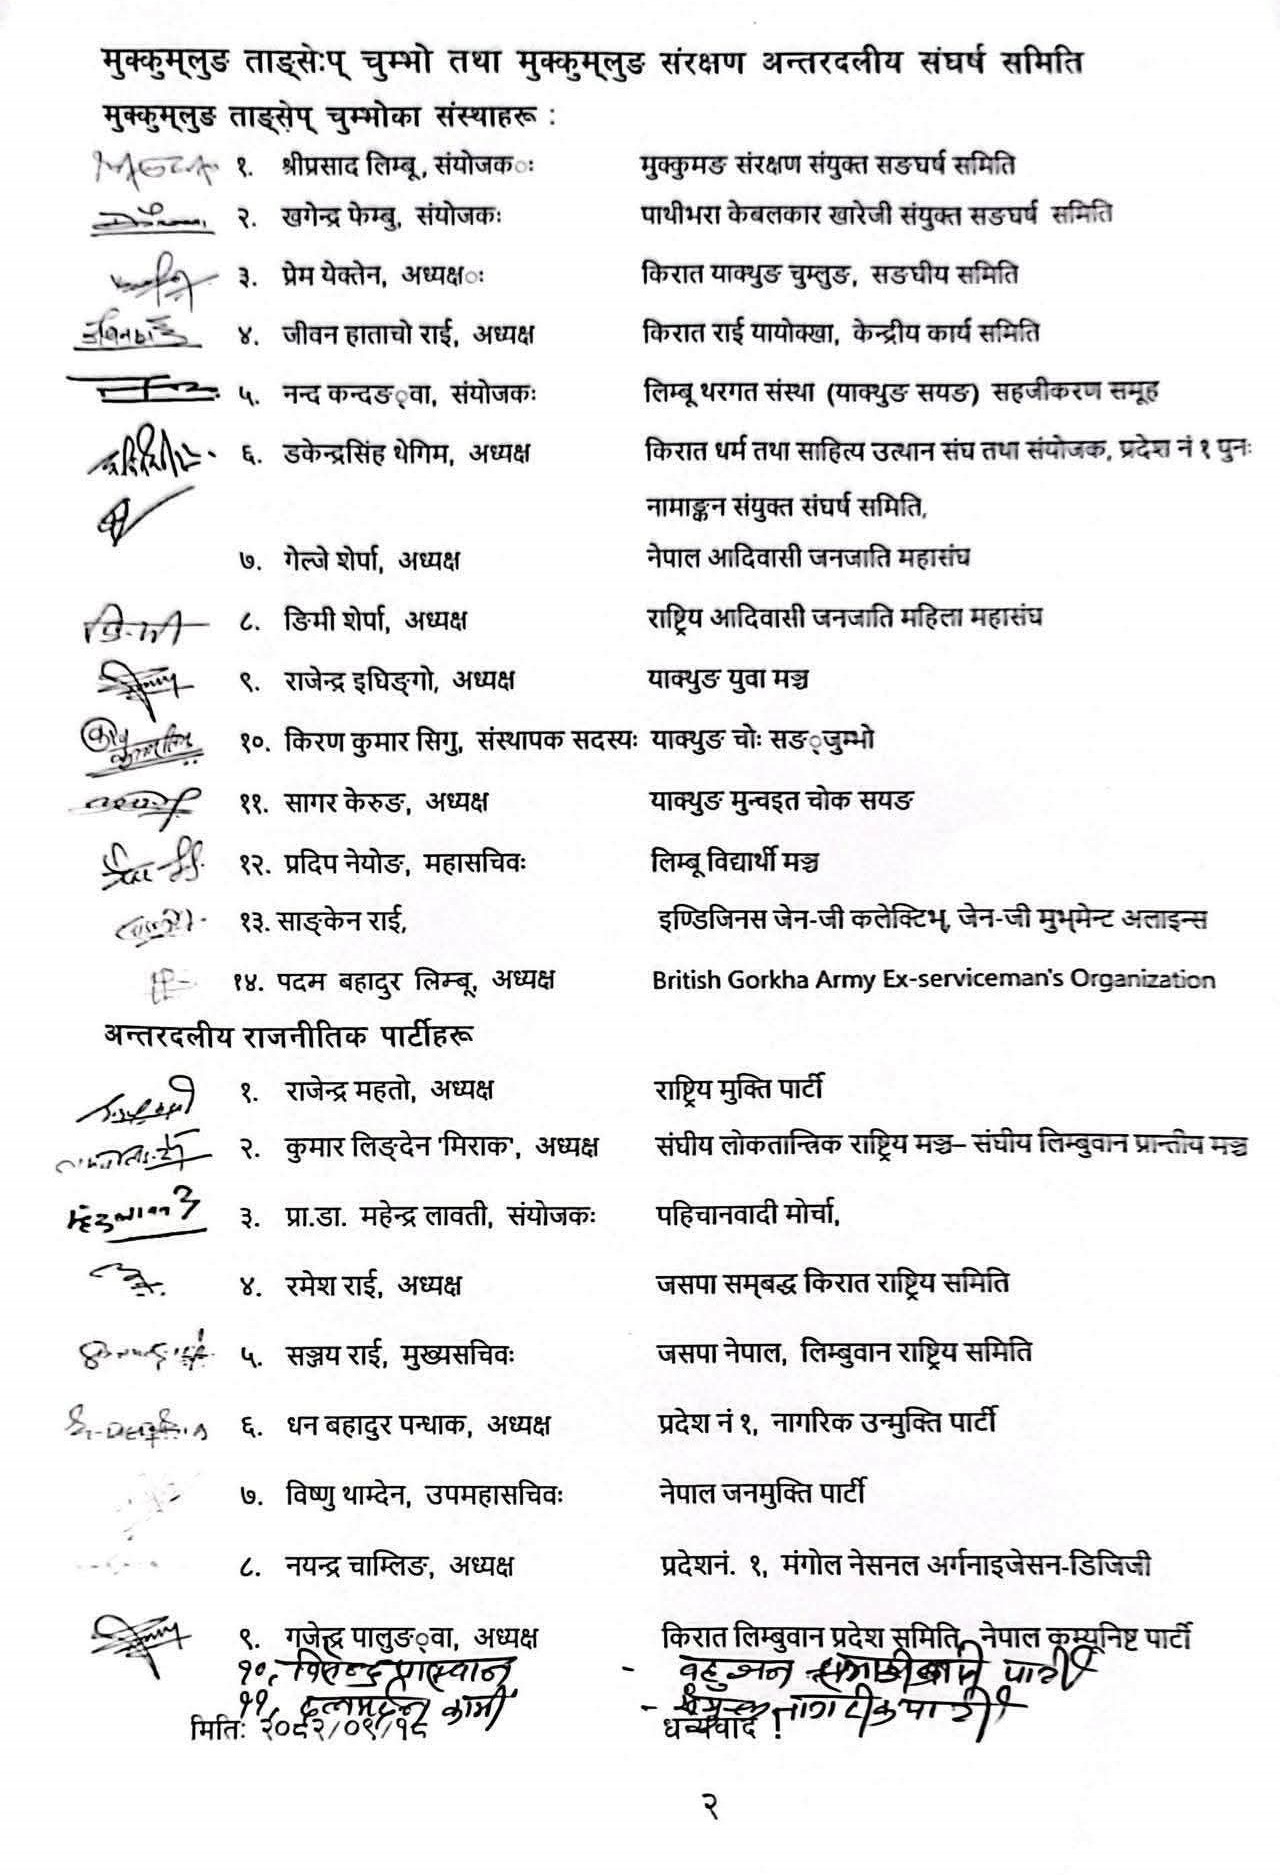 मुक्कुम्लुङ ताङ्सेःप् चुम्भो तथा मुक्कुम्लुङ संरक्षण अन्तरदलीय संघर्ष समिति
मुक्कुम्लुङ ताङ्सेप् चुम्भोका संस्थाहरू :
१. श्रीप्रसाद लिम्बू, संयोजकः मुक्कुमङ संरक्षण संयुक्त सङघर्ष समिति
२. खगेन्द्र फेम्बु, संयोजकः पाथीभरा केबलकार खारेजी संयुक्त सङघर्ष समिति
३. प्रेम येक्तेन, अध्यक्षः किरात याक्थुङ चुम्लुङ, सङघीय समिति
४. जीवन हाताचो राई, अध्यक्ष किरात राई यायोक्खा, केन्द्रीय कार्य समिति
५. नन्द कन्दङ्वा, संयोजकः लिम्बू थरगत संस्था (याक्थुङ सयङ) सहजीकरण समूह
६. डकेन्द्रसिंह थेगिम, अध्यक्ष किरात धर्म तथा साहित्य उत्थान संघ तथा संयोजक, प्रदेश नं १ पुनः
नामाङ्कन संयुक्त संघर्ष समिति,
७. गेल्जे शेर्पा, अध्यक्ष नेपाल आदिवासी जनजाति महासंघ
८. ङिमी शेर्पा, अध्यक्ष राष्ट्रिय आदिवासी जनजाति महिला महासंघ
९. राजेन्द्र इघिङ्गो, अध्यक्ष याक्थुङ युवा मञ्च
१०. किरण कुमार सिगु, संस्थापक सदस्यः याक्थुङ चोः सङ्जुम्भो
११. सागर केरुङ, अध्यक्ष याक्थुङ मुन्चइत चोक सयङ
१२. प्रदिप नेयोङ, महासचिवः लिम्बू विद्यार्थी मञ्च
१३. साङ्केन राई, इण्डिजिनस जेन-जी कलेक्टिभ्, जेन-जी मुभ्मेन्ट अलाइन्स
१४. पदम बहादुर लिम्बू, अध्यक्ष British Gorkha Army Ex-serviceman's Organization
अन्तरदलीय राजनीतिक पार्टीहरू
१. राजेन्द्र महतो, अध्यक्ष राष्ट्रिय मुक्ति पार्टी
२. कुमार लिङ्देन 'मिराक', अध्यक्ष संघीय लोकतान्त्रिक राष्ट्रिय मञ्च– संघीय लिम्बुवान प्रान्तीय मञ्च
३. प्रा.डा. महेन्द्र लावती, संयोजकः पहिचानवादी मोर्चा,
४. रमेश राई, अध्यक्ष जसपा सम्बद्ध किरात राष्ट्रिय समिति
५. सञ्जय राई, मुख्यसचिवः जसपा नेपाल, लिम्बुवान राष्ट्रिय समिति
६. धन बहादुर पन्धाक, अध्यक्ष प्रदेश नं १, नागरिक उन्मुक्ति पार्टी
७. विष्णु थाम्देन, उपमहासचिवः नेपाल जनमुक्ति पार्टी
८. नयन्द्र चाम्लिङ, अध्यक्ष प्रदेशनं. १, मंगोल नेसनल अर्गनाइजेसन-डिजिजी
९. गजेन्द्र पालुङ्वा, अध्यक्ष किरात लिम्बुवान प्रदेश समिति, नेपाल कम्यूनिष्ट पार्टी
१०. पास्वान - बहुजन पार्टी
११. कामी - पार्टी
मितिः २०८२/०९/१८ धन्यवाद !
२